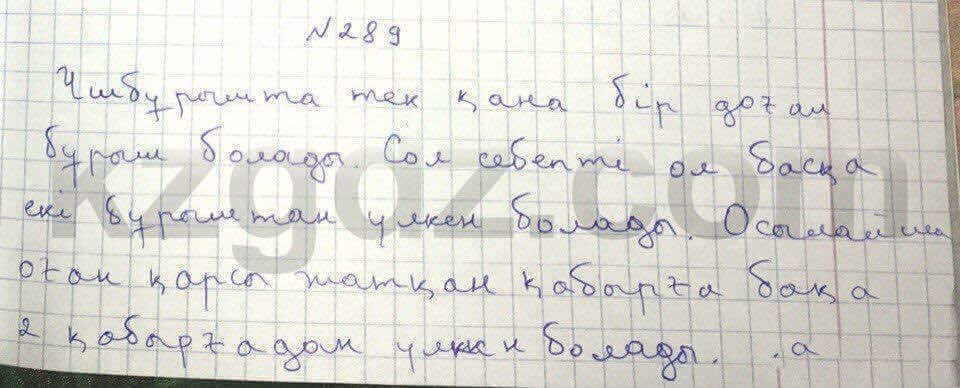 N289
Үшбұрышта тек қана бір доғал
бұрыш болады. Сол себепті ол басқа
екі бұрыштан үлкен болады. Осылайша
оған қарсы жатқан қабырға бақа
2 қабырғадан үлкен болады. .а
kzgoz.com